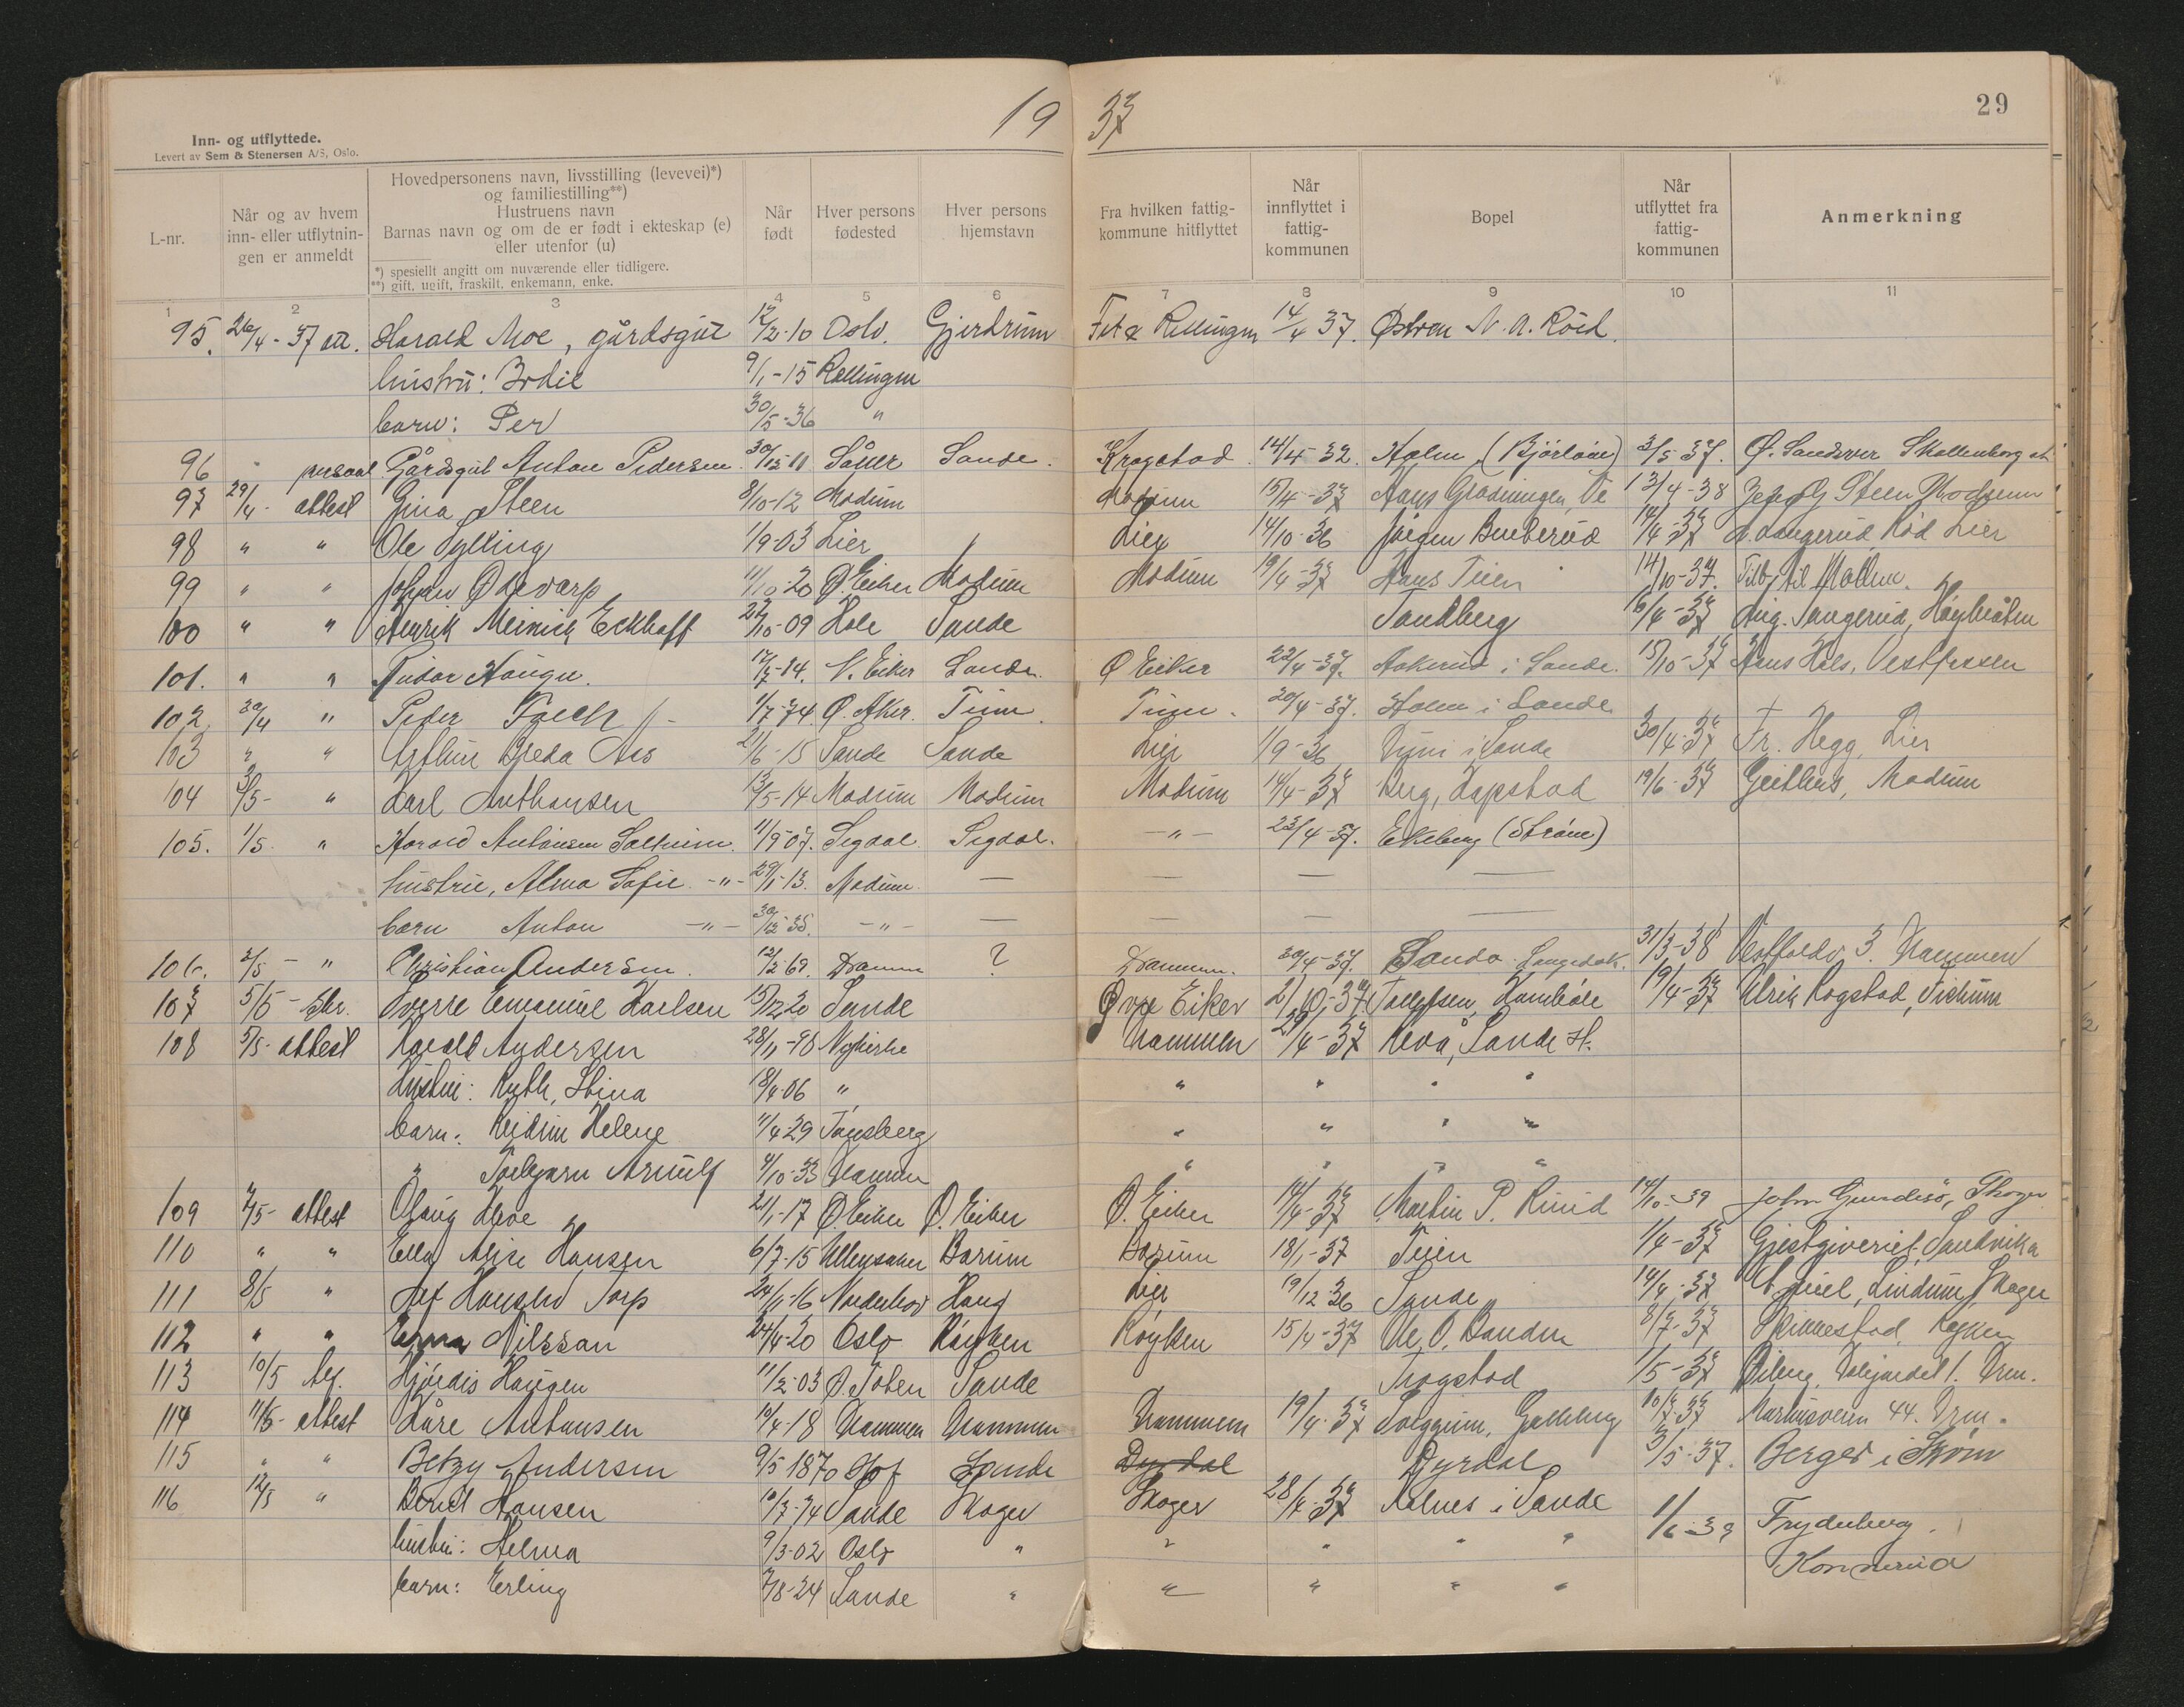 19 37
29
Inn- og utflyttede.
Levert av Sem & Stenersen A/S, Oslo.
L-nr.
Når og av hvem inn- eller utflytnin- gen er anmeldt
Hovedpersonens navn, livsstilling (levevei)*)
og familiestilling**)
Hustruens navn
Barnas navn og om de er født i ekteskap (e)
eller utenfor (u)
*) spesiellt angitt om nuværende eller tidligere.
**) gift, ugift, fraskilt, enkemann, enke.
Når født
Hver persons fødested
Hver persons hjemstavn
Fra hvilken fattig- kommune hitflyttet
Når innflyttet i fattig- kommunen
Bopel
Når utflyttet fra fattig- kommunen
Anmerkning
1 2 3 4 5 6 7 8 9 10 11
95. 26/4-37 att. Harald Moe, gårdsgut 12/2-10 Oslo. Gjerdrum Fet & Rellingen 14/4 37. Østren N. A. Röed.
hustru: Bodil 9/1-15 Rellingen
barn: Per 30/5-36 "
96 " personl Gårdsgut Anton Pedersen 30/12-11 Såner Sande. Kragstad 14/4-32. Holm (Bjørløw) 3/5 37. Ø. Sandsver Skollenborg st
97 29/4- attest Gina Steen 8/10-12 Modum Modum 15/4-37 Hans 13/4-38 Steen Modum
98 " " Ole Sylling 1/9-03 Lier Lier 14/10-36 Jörgen 14/4-37 Röd Lier
99 " " Johan Ødevarp 11/10-20 Ø. Eiker Modum Modum 19/4-37 Hans Teien 14/10-37. til
100 " " Henrik Meinich Eckhoff 27/10-09 Hole Sande Sandberg 16/4-37 Aug. Sangerud,
101. " " Haugen. 17/7-14. N. Eiker Sande. Ø Eiker 22/4-37. i Sande. 15/10-37 Hans Hals, Vestfossen
102. 30/4 " Peder 1/7-74 Ø. Aker. Tinn. Tinn. 20/4-37. Holm i Sande †
103 " " Arthur Breda Aas 21/6-15 Sande Sande Lier 1/9-36 i Sande 30/4-37 Fr. Hegg, Lier
104 3/5- " Karl Anthonsen 13/5-14 Modum Modum Modum 14/4-37 Berg, 19/6-37 Geithus, Modum
105. 1/5. " Harald Antonsen Solheim. 11/9-07. Sigdal Sigdal. -"- 23/4-37. Ekeberg (Strøm)
hustru, Alma Sofie -"- 29/1-13. Modum — — — —
barn Anton -"- 30/12-35. -"- — — — —
106. 3/5 - " Christian Andersen. 12/2-69. Dramm ? Drammen. 30/4-37. Sando 31/3-38 Vestfoldv 3. Drammen
107 5/5 - Sverre Emanuel Karlsen 15/12-20 Sande Øvre Eiker 21/10-37 Tollefsen, 19/4-37 Ulrik Rogstad,
108 5/5- attest Harald Andersen 28/11-98 Nykirke Drammen 29/4-37 Revå, Sande st.
Hustru: Ruth, Stina 18/4-06 " " " " "
barn: Reidun Helene 11/4 29 Tønsberg " " " "
" Torbjørn Arnulf 4/10-33 Drammen " " " "
109 7/5- attest Olaug Hroe 21/1-17 Ø. Eiker Ø. Eiker Ø. Eiker 14/4-37 Martin P. Ruud 14/10-39 John Gundesö, Skoger
110 " " Ella Alise Hansen 6/7-15 Ullensaker Bærum Bærum 18/1-37 Teien 1/4-37 Gjestgiveriet, Sandvika
111 8/5 " Alf Haugslid Torp 24/11-16 Norderhov Haug Lier 19/12 36 Sande 14/4-37 Lindum Skoger
112 " " Erna Nilssan 24/4-20 Oslo Røyken Røyken 15/4-37 Ole O. Sanden 8/7-37 Skinnestad, Røyken
113 10/5 lef. Hjördis Haugen 11/2-03 Ø. Toten Sande Trogstad 1/5-37 Drm.
114 11/5- attest Kåre Anthonsen 10/4-18 Drammen Drammen Drammen 19/4-37 Solgjem, Galleberg 10/7-37 44. Drm.
115 " " Betzy Andersen 9/5 1870 Hof Sande Dyrdal Dyrdal 3/5-37. Berger i Strøm
116 12/5 " Bernt Hansen 10/7-74 Sande Skoger Skoger 28/4-37 i Sande 1/6-39 Frydenberg.
hustru: Helma 9/3-02 Oslo " " " " " Konnerud
barn: Erling 7/8-24 Sande " " " " "